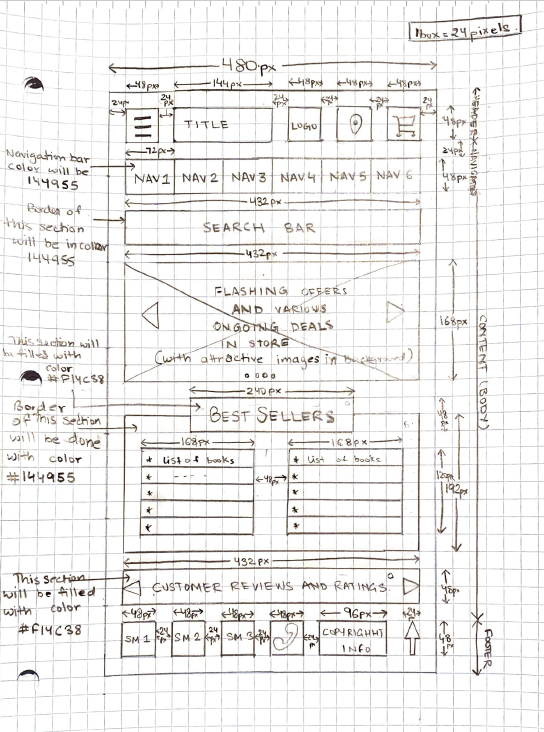 1 box = 24 pixels.
480px
48px
144px
48px
48px
48px
24px
24px
24px
24px
24px
24px
TITLE
LOGO
48px
24px
HEADER
72px
Navigation bar
color will be
144955
NAV 1
NAV 2
NAV 3
NAV 4
NAV 5
NAV 6
48px
432px
Border of
this section
will be in color
144955
SEARCH BAR
432px
FLASHING OFFERS
AND VARIOUS
ONGOING DEALS
IN STORE
(with attractive images in background)
168px
CONTENT (BODY)
This section will
be filled with
color
#F14C38
240px
BEST SELLERS
Border
of this section
will be done
with color
#144955
168px
168px
* List of books
* ----
*
*
*
48px
* List of books
*
*
*
*
192px
432px
This section
will be filled
with color
#F14C38
CUSTOMER REVIEWS AND RATINGS
48px
48px
48px
48px
48px
96px
24
px
SM 1
24
px
SM 2
24
px
SM 3
24
px
24
px
COPYRIGHT
INFO
48
px
FOOTER